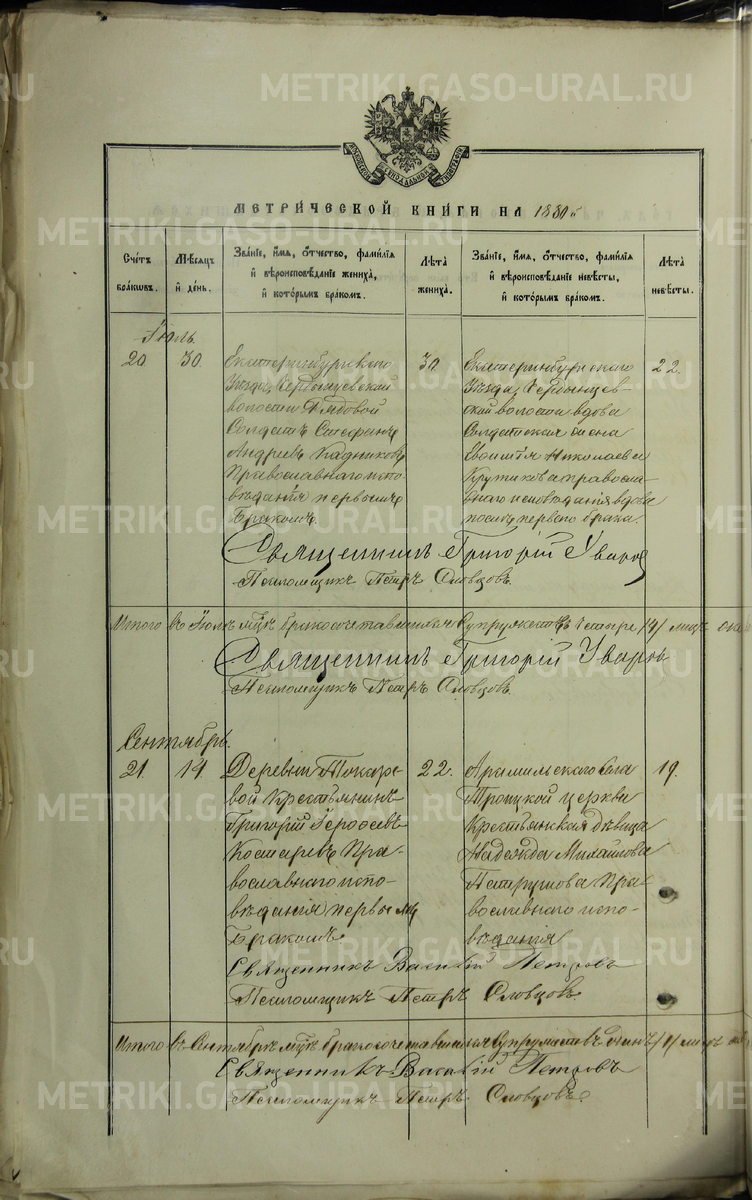 METRIKI.GASO-URAL.RU
МОСКОВСКОЙ СѴНОДАЛЬНОЙ ТИПОГРАФІИ
МЕТРИ́ЧЕСКОЙ КНИ́ГИ НА 1880 г.
Сче́тъ бра́кωвъ.
Мѣ́сѧцъ и҆ де́нь.
Зва́нїе, и҆́мѧ, ѻ҆́тчество, фами́лїѧ и҆ вѣроисповѣ́данїе жениха̀, и҆ кото́рымъ бра́комъ.
Лѣ́та жениха̀.
Зва́нїе, и҆́мѧ, ѻ҆́тчество, фами́лїѧ и҆ вѣроисповѣ́данїе невѣ́сты, и҆ кото́рымъ бра́комъ.
Лѣ́та невѣ́сты.
Іюль
20. 30.
Екатеринбургскаго
Уѣзда,
волости Рядовой
Солдатъ Стефанъ
Андреевъ Кадниковъ
Православнаго испо-
вѣданія первымъ
Бракомъ.
30
Екатеринбургскаго
Уѣзда,
ской волости вдова
Солдатская жена
Николаева
Крутикова правосла-
внаго исповѣданія вдова
послѣ перваго брака.
22.
Священникъ Григорій Уваровъ
Псаломщикъ Петръ Словцовъ.
Итого въ Іюлѣ мцѣ бракосочетавшихся Супружествъ четыре /4/ лицъ
Священникъ Григорій Уваровъ
Псаломщикъ Петръ Словцовъ.
Сентябрь.
21. 14
Деревни Токаре-
вой Крестьянинъ
Григорій
Костаревъ Пра-
вославнаго испо-
вѣданія первымъ
Бракомъ
22.
Арамильскаго Села
Троицкой церкви
Крестьянская дѣвица
Надежда Михайлова
Петрушова Пра-
вославнаго испо-
вѣданія
19.
Священникъ Василій Петровъ
Псаломщикъ Петръ Словцовъ.
Итого въ Сентябрѣ мцѣ бракосочетавшихся Супружествъ одинъ /1/ лицъ
Священникъ Василій Петровъ
Псаломщикъ Петръ Словцовъ.